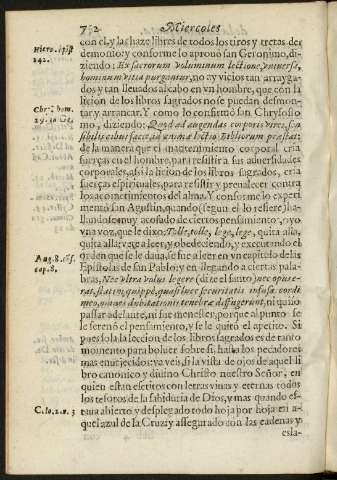 752 Miercoles
con el, y las haze libres de todos los tiros y tretas del
Hiero. epist. 142.
demonio: y conforme lo aprouò san Geronimo, di-
ziendo: Ex sacrorum voluminum lectione, vniuersa
hominum vitia purgantur, no ay vicios tan arrayga-
dos y tan lleuados al cabo en vn hombre, que con la
licion de los libros sagrados no se puedan desmon-
tar, y arrancar. Y como lo confirmò san Chrysosto-
mo, diziendo: Quod ad augendas corporis vires, sen-
sibilis cibus facit, ad animæ lectio Bibliorum præstat:
de la manera que el mantenimiento corporal cria
fuerças en el hombre, para resistir a sus aduersidades
corporales, assi la licion de los libros sagrados, cria
fuerças espirituales, para resistir y preualecer contra
los acometimientos del alma. Y conforme lo experi
mentò san Agustin, quando (segun el lo refiere) ha-
llandose muy acosado de ciertos pensamientos, oyo
vna voz, que le dixo: Tolle, tolle, lege, lege, quita alla,
quita alla; vee a leer, y obedeciendo, y executando el
Aug. 8. cōf. cap. 8.
orden que se le daua, se fue a leer en vn capitulo de las
Epistolas de san Pablo; y en llegando a ciertas pala-
bras, Nec vltra volui legere (dize el santo) nec opus e-
rat, statim quippe, quasi luce securitatis infusa cordi
meo, omnes dubitationis tenebræ diffugerunt, ni quiso
passar adelante, ni fue menester, porque al punto se
le serenò el pensamiento, y se le quitò el apetito. Si
pues sola la leccion de los libros sagrados es de tanto
momento para boluer sobre si, hasta los pecadores
mas enuejecidos: ya veis, si la vista de ojos de aquel li
bro canonico y diuino Christo nuestro Señor, en
quien estan escritos con letras viuas y eternas todos
C. lo. 2. n. 3
los tesoros de la sabiduria de Dios, y mas quando es-
taua abierto y desplegado todo hoja por hoja en a-
quel azul de la Cruz; y assegurado con las cadenas y
esla-